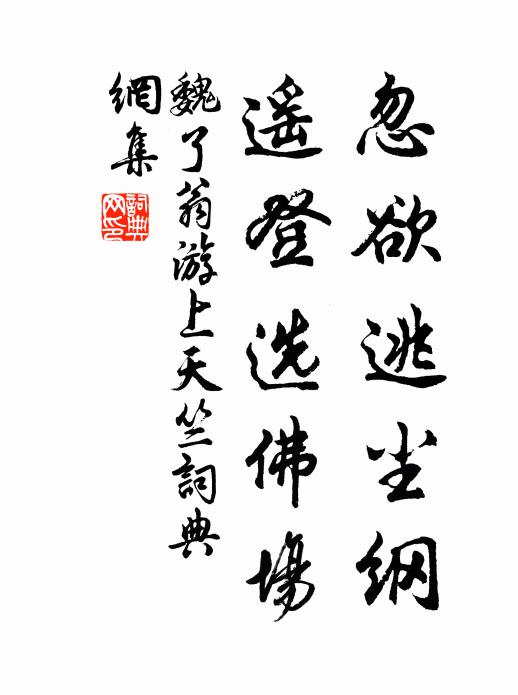 忽欲逃尘纲
遥登选佛場
魏了翁游上天竺詞典
網集
詞典網印